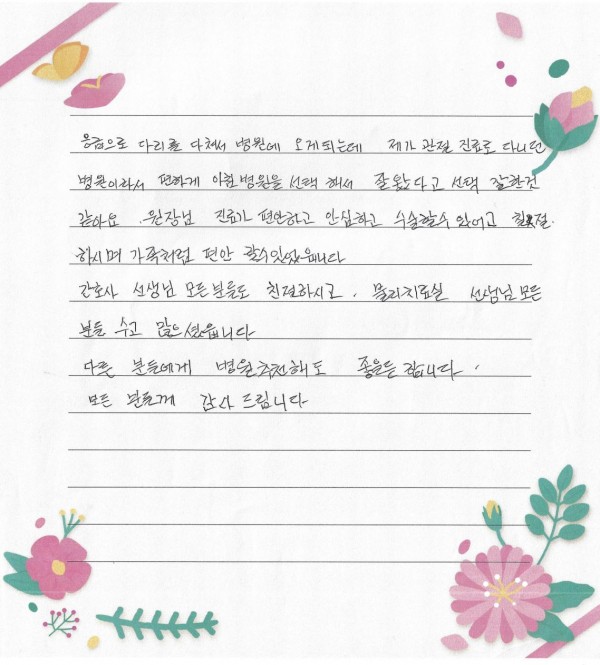 응급으로 다리를 다쳐서 병원에 오게되는데 제가 관절 진료로 다니던
병원이라서 편하게 이 병원을 선택 해서 잘왔다고 선택 잘한건
같아요. 원장님 진료가 편안하고 안심하고 수술할수 있어고 친절.
하시며 가족처럼 편안 할수있었읍니다
간호사 선생님 모든분들도 친절하시고. 물리치료실 선생님 모든
분들 수고 많으셨읍니다
다른 분들에게 병원추천해도 좋을든 합니다.
모든 분들께 감사 드립니다